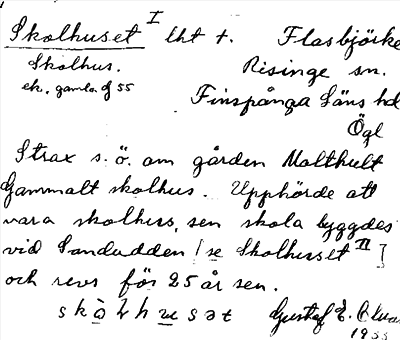 Skolhuset I lht †. Flasbjörke
Skolhus. Risinge sn.
ek. gamla of 55 Finspånga läns hd
Ögl
Strax s. ö. om gården Malthult
Gammalt skolhus. Upphörde att
vara skolhus, sen skola byggdes
vid Sandudden [se Skolhuset II]
och revs för 25 år sen.
skòlhusət Gustaf E.
1955